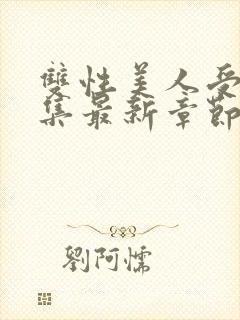 雙性美人受
集最新章節
劉阿懦